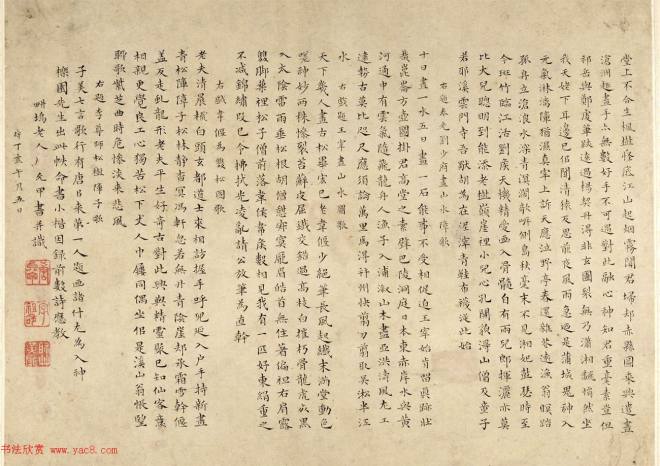 堂上不合生楓樹怪底江山起烟霧聞君掃却赤縣圖乘興遣畫
滄洲趣畫手亦無數好手不可遇對此融心神知君重毫素豈但
祁岳與鄭虔筆跡遠過楊契丹得非玄圃裂無乃瀟湘翻悄然坐
我天姥下耳邊已似聞清猿反思前夜風雨急乃是蒲城鬼神入
元氣淋漓障猶濕真宰上訴天應泣野亭春還雜花遠漁翁暝踏
孤舟立滄浪水深青溟濶欹岸側島秋毫末不見湘妃鼓瑟時至
今斑竹臨江活劉侯天機精愛畫入骨髓自有兩兒郎揮灑亦莫
比大兒聰明到能添老樹巔崖裡小兒心孔開貌得山僧及童子
若耶溪雲門寺吾獨胡為在泥滓青鞋布襪從此始
右題奉先劉少府畫山水障歌
十日畫一水五日畫一石能事不受相促迫王宰始肯留真跡壯
哉崑崙方壺圖掛君高堂之素壁巴陵洞庭日本東赤岸水與黃
河通中有雲氣隨飛龍舟人漁子入浦漵山木盡亞洪濤風尤工
遠勢古莫比咫尺應須論萬里焉得并州快剪刀剪取吳松半江
水
右戲題王宰畫山水圖歌
天下幾人畫古松畢宏已老韋偃少絕筆長風起纖末滿堂動色
嗟神妙兩株慘裂苔蘚皮屈鐵交錯迴高枝白摧朽骨龍虎死黑
入太陰雷雨垂松根胡僧憩寂寞龐眉皓首無住著偏袒右肩露
雙脚葉裡松子僧前落韋侯韋侯數相見我有一匹好東絹重之
不減錦繡段已令拂拭光凌亂請公放筆為直幹
右戲韋偃為雙松圖歌
老夫清晨梳白頭玄都道士來相訪握手呼兒延入戶手持新畫
青松障障子松林靜杳冥馮軒忽若無丹青陰崖却承霜雪幹偃
蓋反走虬龍形老夫平生好奇古對此興與精靈聚已知仙客意
相親更覺良工心獨苦松下丈人巾屨同偶坐似是商山翁悵望
聊歌紫芝曲時危慘淡來悲風
右題李尊師松樹障子歌
子美七言歌行有唐以來第一人題畫諸什尤為入神
櫟園先生出此帙命書小楷因錄前數詩應教
老人書并識
時丁亥午月五日
书法欣赏 www.yac8.com